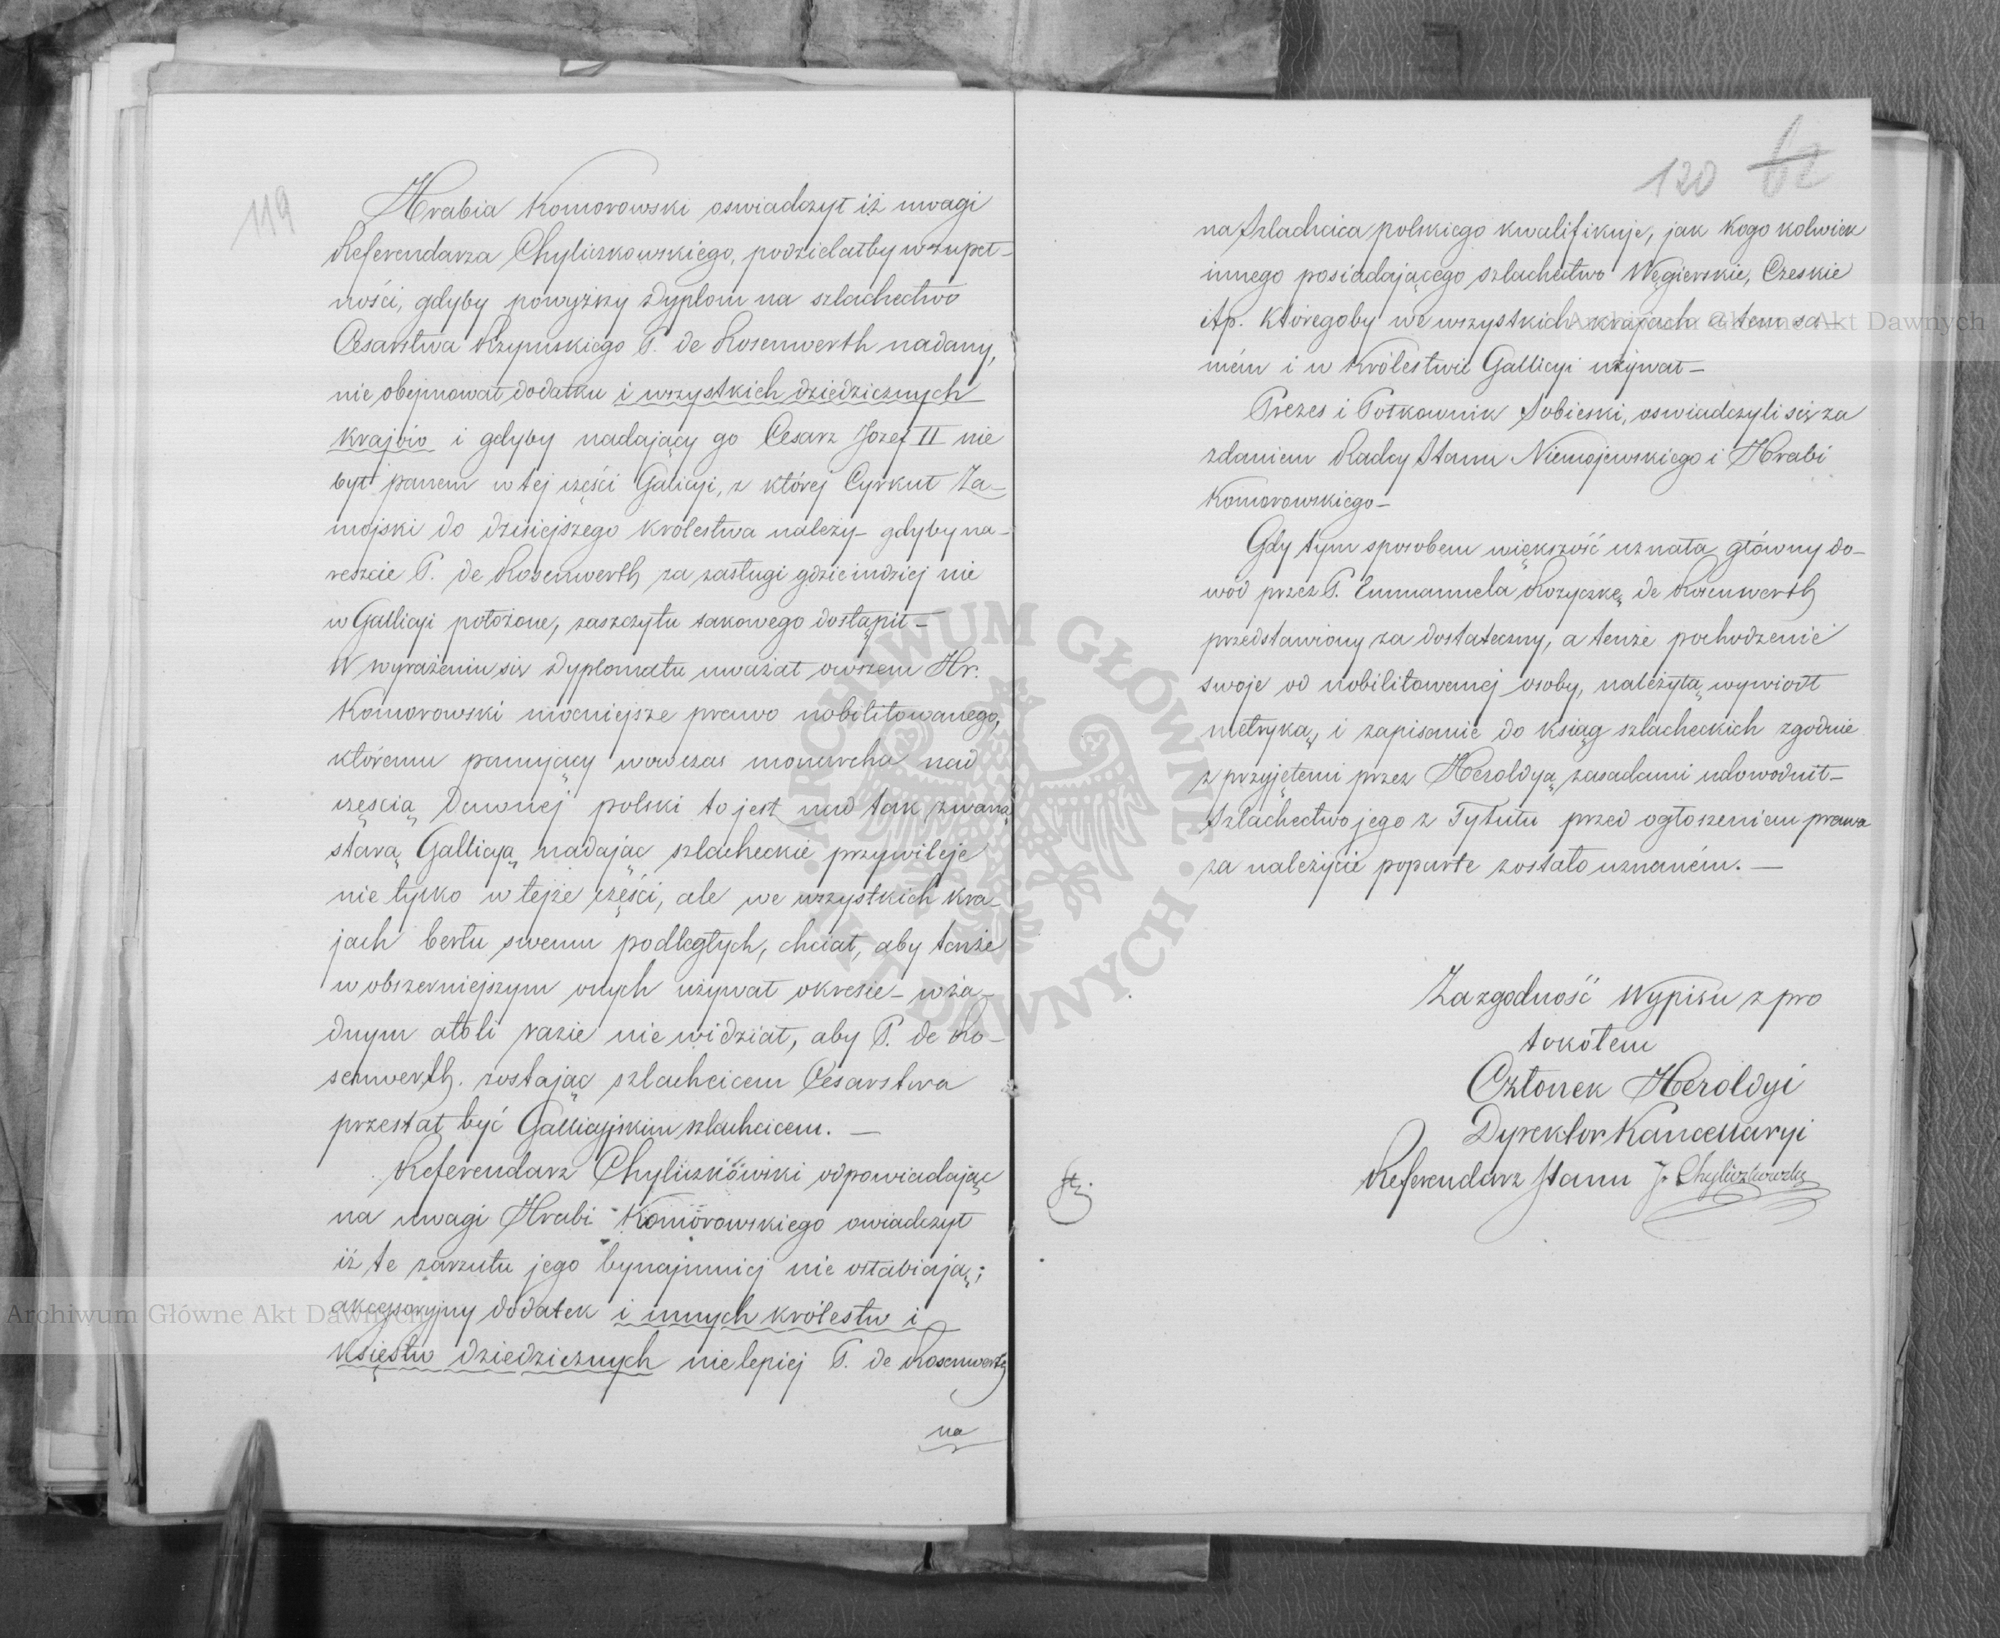 119
Hrabia Komorowski oswiadczył iż uwagi
Referendarza Chyliczkowskiego, podzielałby w zupeł-
ności, gdyby powyższy dyplom na szlachectwo
Cesarstwa Rzymskiego P. de Rosenwerth nadany,
nie obejmował dodatku i wszystkich dziedzicznych
krajów i gdyby nadający go Cesarz Jozef II nie
był panem w tej części Galicyi, z której Cyrkuł Za-
mojski do dzisiejszego królestwa należy - gdyby na-
reszcie P. de Rosenwerth za zasługi gdzieindziej nie
w Gallicyi położone, zaszczytu takowego dostąpił -
W wyrażeniu się dyplomatu uważał owszem Hr.
Komorowski mocniejsze prawo nobilitowanego,
któremu panujący wówczas monarcha nad
częścią dawnej polski to jest nad tak zwaną
starą Gallicyą nadając szlacheckie przywileje
nie tylko w tejże części, ale we wszystkich kra-
jach berłu swemu podległych, chciał, aby tenże
w obszerniejszym onych używał okresie - w ża-
dnym atoli razie nie widział, aby P. de Ro-
senwerth zostając szlachcicem Cesarstwa
przestał być Gallicyjskim szlachcicem. —
Referendarz Chyliczkowski odpowiadając
na uwagi Hrabi Komorowskiego owiadczył
iż te zarzutu jego bynajmniej nie osłabiają;
akcessoryjny dodatek i innych królestw i
księstw dziedzicznych nie lepiej P. de Rosenwerth
na
120 62
na szlachcica polskiego kwalifikuje, jak kogo kolwiek
innego posiadającego szlachectwo Węgierskie, Czeskie
itp. któregoby we wszystkich krajach a tem sa-
mém i w Królestwie Gallicyi używał -
Prezes i Półkownik Sobieski, oswiadczyli się za
zdaniem Radcy Stanu Niemojewskiego i Hrabi
Komorowskiego -
Gdy tym sposobem większość uznała główny do-
wód przez P. Emmanuela Rozyczkę de Rosenwerth
przedstawiony za dostateczny, a tenże pochodzenie
swoje od nobilitowanej osoby, należytą wywiódł
metryką, i zapisanie do ksiąg szlacheckich zgodnie
z przyjętemi przez Heroldyą zasadami udowodnił -
Szlachectwo jego z Tytułu przed ogłoszeniem prawa
za należycie poparte zostało uznaném. —
Za zgodność wypisu z pro
tokółem
Członek Heroldyi
Dyrektor Kancellaryi
Referendarz Stanu J. Chyliczkowski
Archiwum Główne Akt Dawnych
Archiwum Główne Akt Dawnych
ARCHIWUM GŁÓWNE · AKT DAWNYCH ·